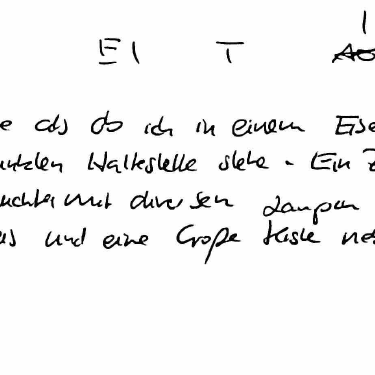 EI T I
e als ob ich in einem Eise
utzten Haltestelle stehe. Ein Z
uchtet mit diversen Lampen
us und eine Große Kiste ne